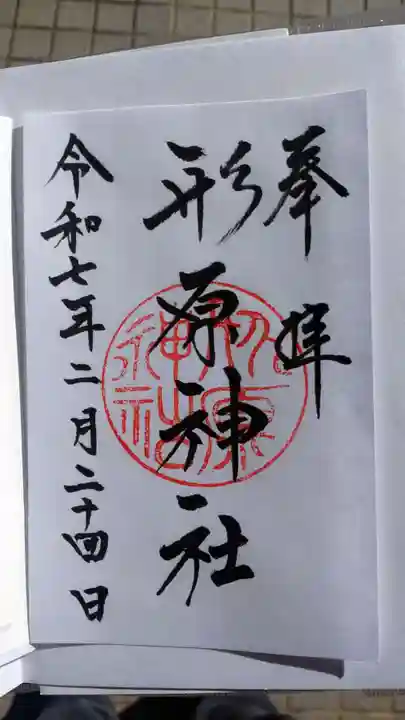 奉拝
形原神社
令和七年二月二十四日
形原
神社